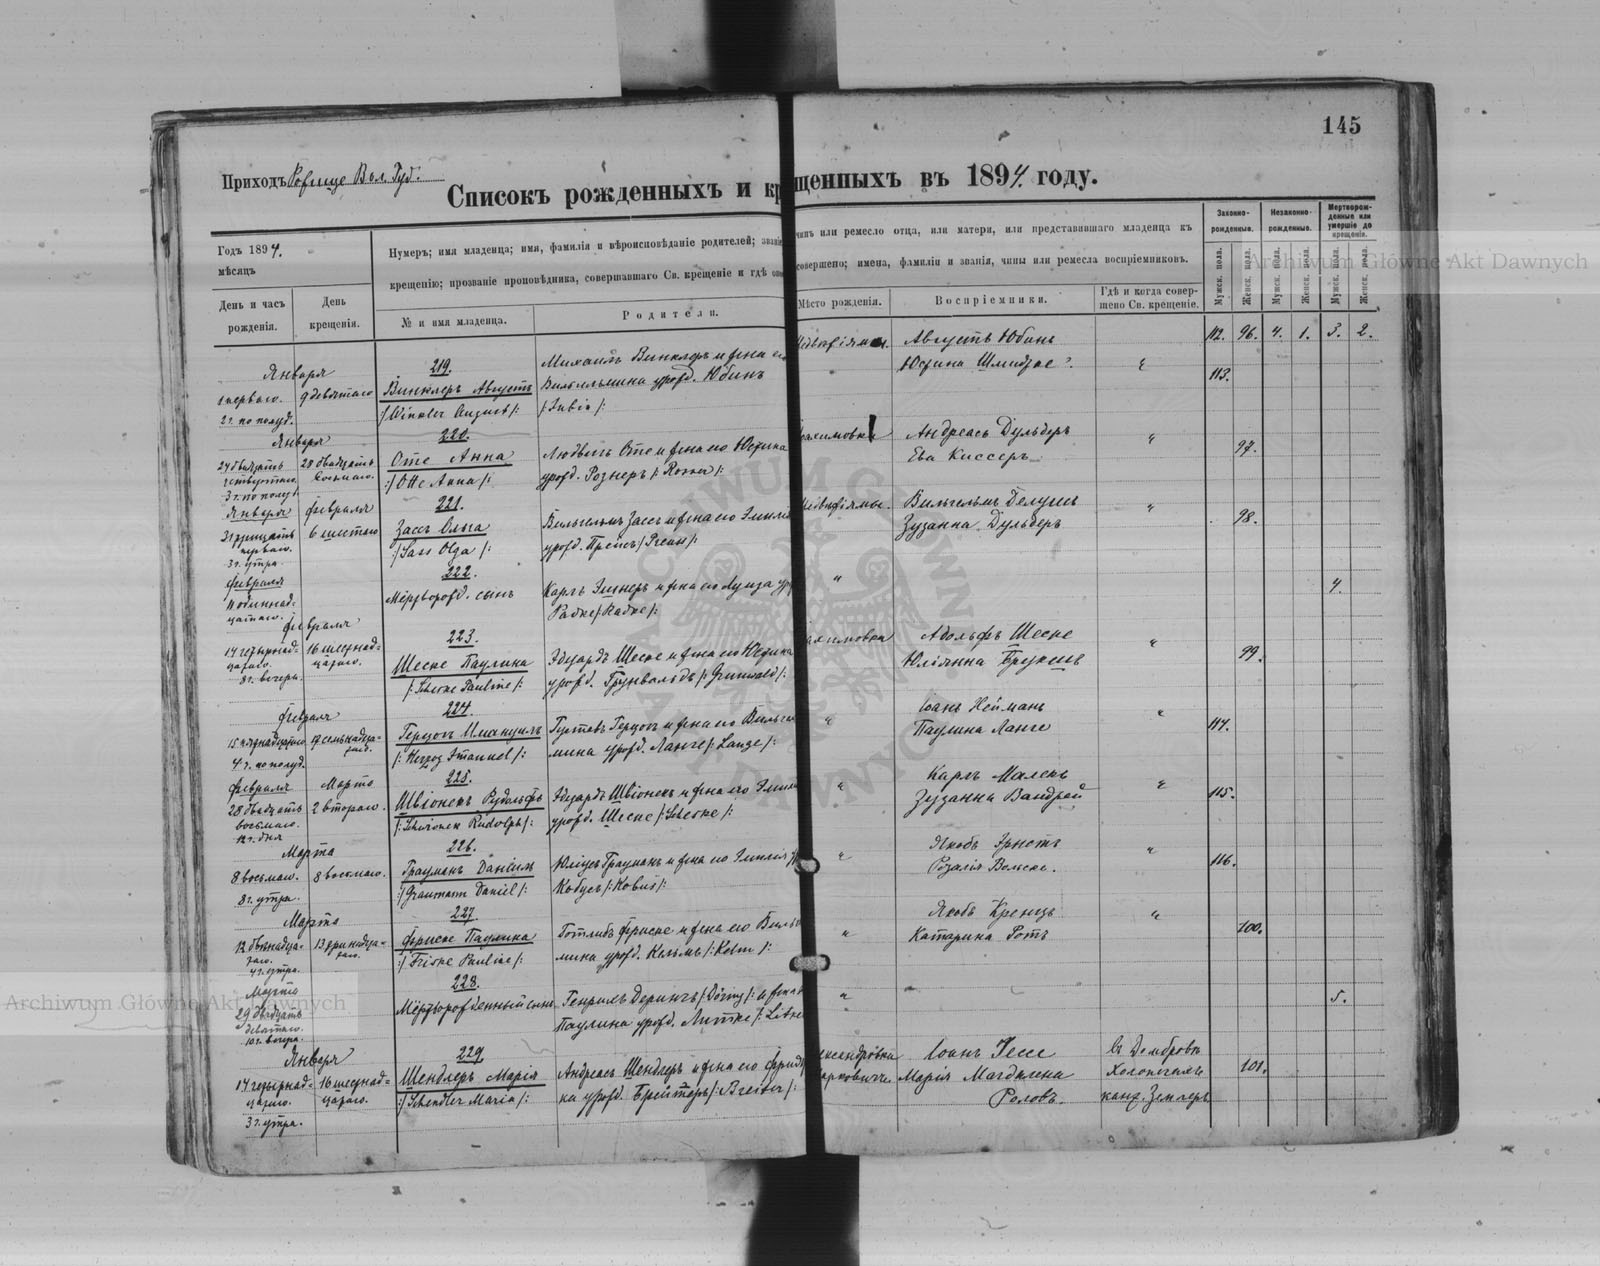 145
Приходъ Рожище Вол. Губ.
Списокъ рожденныхъ и крещенныхъ въ 1894. году.
Годъ 1894.
мѣсяцъ
День и часъ рожденія.
День крещенія.
Нумеръ; имя младенца; имя, фамилія и вѣроисповѣданіе родителей; званіе
чинъ или ремесло отца, или матери, или представившаго младенца къ
крещенію; прозваніе проповѣдника, совершавшаго Св. крещеніе и гдѣ оно
совершено; имена, фамиліи и званія, чины или ремесла воспріемниковъ.
№ и имя младенца.
Родители.
Мѣсто рожденія.
Воспріемники.
Гдѣ и когда совершено Св. крещеніе.
Законно-рожденные.
Незаконно-рожденные.
Мертворожденные или умершіе до крещенія.
Мужск. пола.
Женск. пола.
Мужск. пола.
Женск. пола.
Мужск. пола.
Женск. пола.
112. 96. 4. 1. 3. 2.
Января
1 перваго.
2 ч. по полуд.
9 девятаго
219.
Винклеръ Августъ
/: Winkler August :/
Михаилъ Винклеръ и жена его
Вильгельмина урожд. Юбинъ
/: Jubin :/
Августъ Юбинъ
Юстина Шмидтке
113.
Января
24 двадцать
четвертаго
3 ч. по полуд.
28 двадцать
восьмаго.
220.
Отте Анна
/: Otte Anna :/
Людвигъ Отте и жена его Юстина
урожд. Рознеръ
Андреасъ Дульберъ
Ева Киссеръ
97.
Января
31 тридцать
перваго.
3 ч. утра.
Февраля
6 шестаго
221.
Зассъ Ольга
/: Sass Olga :/
Вильгельмъ Зассъ и жена его Эмилія
урожд. Прейсъ
Вильгельмъ
Зузанна Дульберъ
98.
Февраля
11 одиннад-
цатаго.
222.
Мёртворожд. сынъ
Карлъ и жена его Луиза ур
Радке /: Radke :/
4.
Февраля
14 четырнад-
цатаго.
8 ч. вечера.
16 шестнад-
цатаго.
223.
Шеске Паулина
/: Scheske Pauline :/
Эдуардъ Шеске и жена его Юстина
урожд. Грунвальдъ /: Grunwald :/
Адольфъ Шеске
Юліянна
99.
Февраля
15 пятнадцатаго
4 ч. по полуд.
17 семнадца-
таго.
224.
Герцогъ Имануилъ
/: Herzog Imanuel :/
Густавъ Герцогъ и жена его Вильгель
мина урожд. Ланге /: Lange :/
Іоанъ Нейманъ
Паулина Ланге
114.
Февраля
28 двадцать
восьмаго.
12 ч. дня
Марта
2 втораго.
225.
Швіонекъ Рудольфъ
/: Schwionek Rudolph :/
Эдуардъ Швіонекъ и жена его Эмил
урожд. Шеске /: Scheske :/
Карлъ
Зузанна
115.
Марта
8 восьмаго.
8 ч. утра.
8 восьмаго.
226.
Грауманъ Даніилъ
/: Graumann Daniel :/
Юліусъ Грауманъ и жена его Эмилія ур
Кобусъ /: Kobus :/
Якобъ Эрнстъ
Розалія Вольске.
116.
Марта
12 двѣнадца-
таго.
4 ч. утра.
13 тринадца-
таго.
227.
Фриске Паулина
/: Friske Pauline :/
Готлибъ Фриске и жена его Виль
мина урожд. Кельмъ /: Kelm :/
Якобъ Кренцъ
Катарина Ротъ
100.
Марта
29 двадцать
девятаго.
10 ч. вечера.
228.
Мёртворожденный сынъ
Генрихъ Дерингъ /: Döring :/ и жена
Паулина урожд. Литке
5.
Января
14 четырнад-
цатаго.
3 ч. утра.
16 шестнад-
цатаго.
229.
Шендлеръ Марія
/: Schendler Maria :/
Андреасъ Шендлеръ и жена его Фридри
ка урожд. Брейтеръ /: Breiter :/
Іоанъ Гессе
Марія Магдалина
въ Домбровѣ
101.
Archiwum Główne Akt Dawnych
Archiwum Główne Akt Dawnych